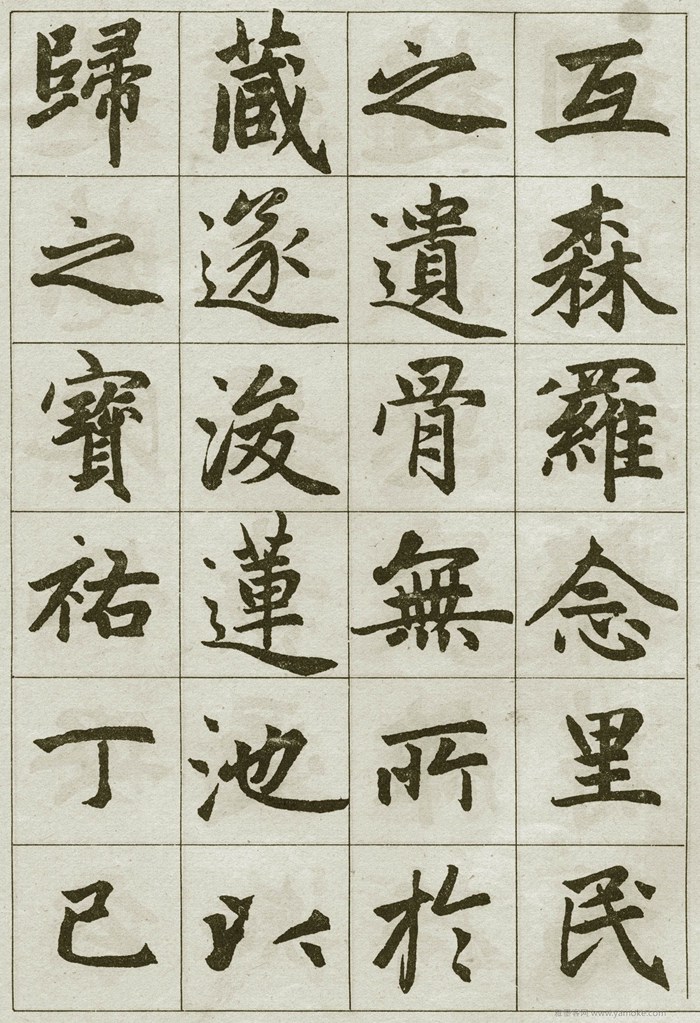 互森羅念里民
之遺骨無所於
藏遂浚蓮池以
歸之寶祐丁巳
雅墨客网 www.yamoke.com